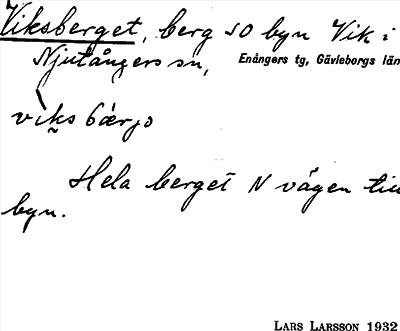 Viksberget, berg SO byn Vik i
Njutångers sn, Enångers tg, Gävleborgs län
Hela berget N vägen till
byn.
LARS LARSSON 1932